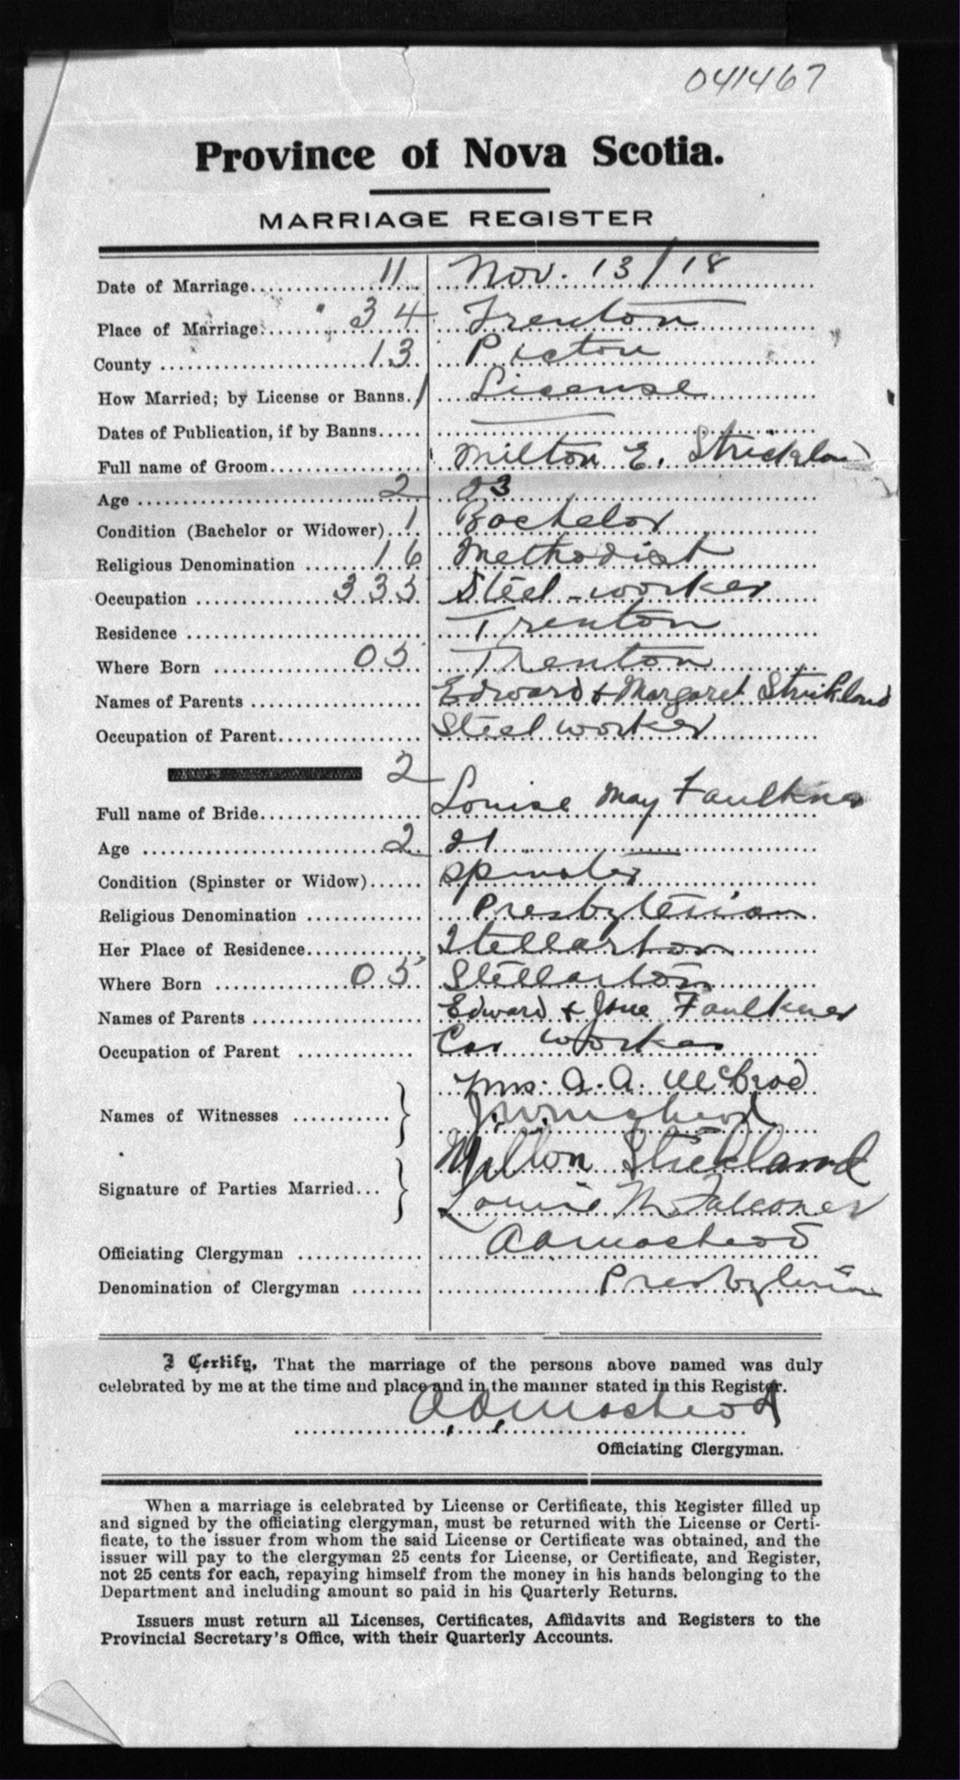 041467
Province of Nova Scotia.
MARRIAGE REGISTER
Date of Marriage 11 Nov. 13/18
Place of Marriage 34 Trenton
County 13 Pictou
How Married; by License or Banns. 1 License
Dates of Publication, if by Banns
Full name of Groom Milton E. Strickland
Age 2 23
Condition (Bachelor or Widower) 1 Bachelor
Religious Denomination 16 Methodist
Occupation 335 Steel-worker
Residence Trenton
Where Born 05 Trenton
Names of Parents Edward & Margaret Strickland
Occupation of Parent Steel worker
2
Full name of Bride Louise May Faulkner
Age 2 21
Condition (Spinster or Widow) Spinster
Religious Denomination Presbyterian
Her Place of Residence Stellarton
Where Born 05 Stellarton
Names of Parents Edward & Jane Faulkner
Occupation of Parent Car worker
Mrs. A. A.
Names of Witnesses
Milton Strickland
Signature of Parties Married
Louise M. Falconer
Officiating Clergyman
Denomination of Clergyman Presbyterian
I Certify, That the marriage of the persons above named was duly
celebrated by me at the time and place and in the manner stated in this Register.
Officiating Clergyman.
When a marriage is celebrated by License or Certificate, this Register filled up
and signed by the officiating clergyman, must be returned with the License or Certi-
ficate, to the issuer from whom the said License or Certificate was obtained, and the
issuer will pay to the clergyman 25 cents for License, or Certificate, and Register,
not 25 cents for each, repaying himself from the money in his hands belonging to the
Department and including amount so paid in his Quarterly Returns.
Issuers must return all Licenses, Certificates, Affidavits and Registers to the
Provincial Secretary's Office, with their Quarterly Accounts.